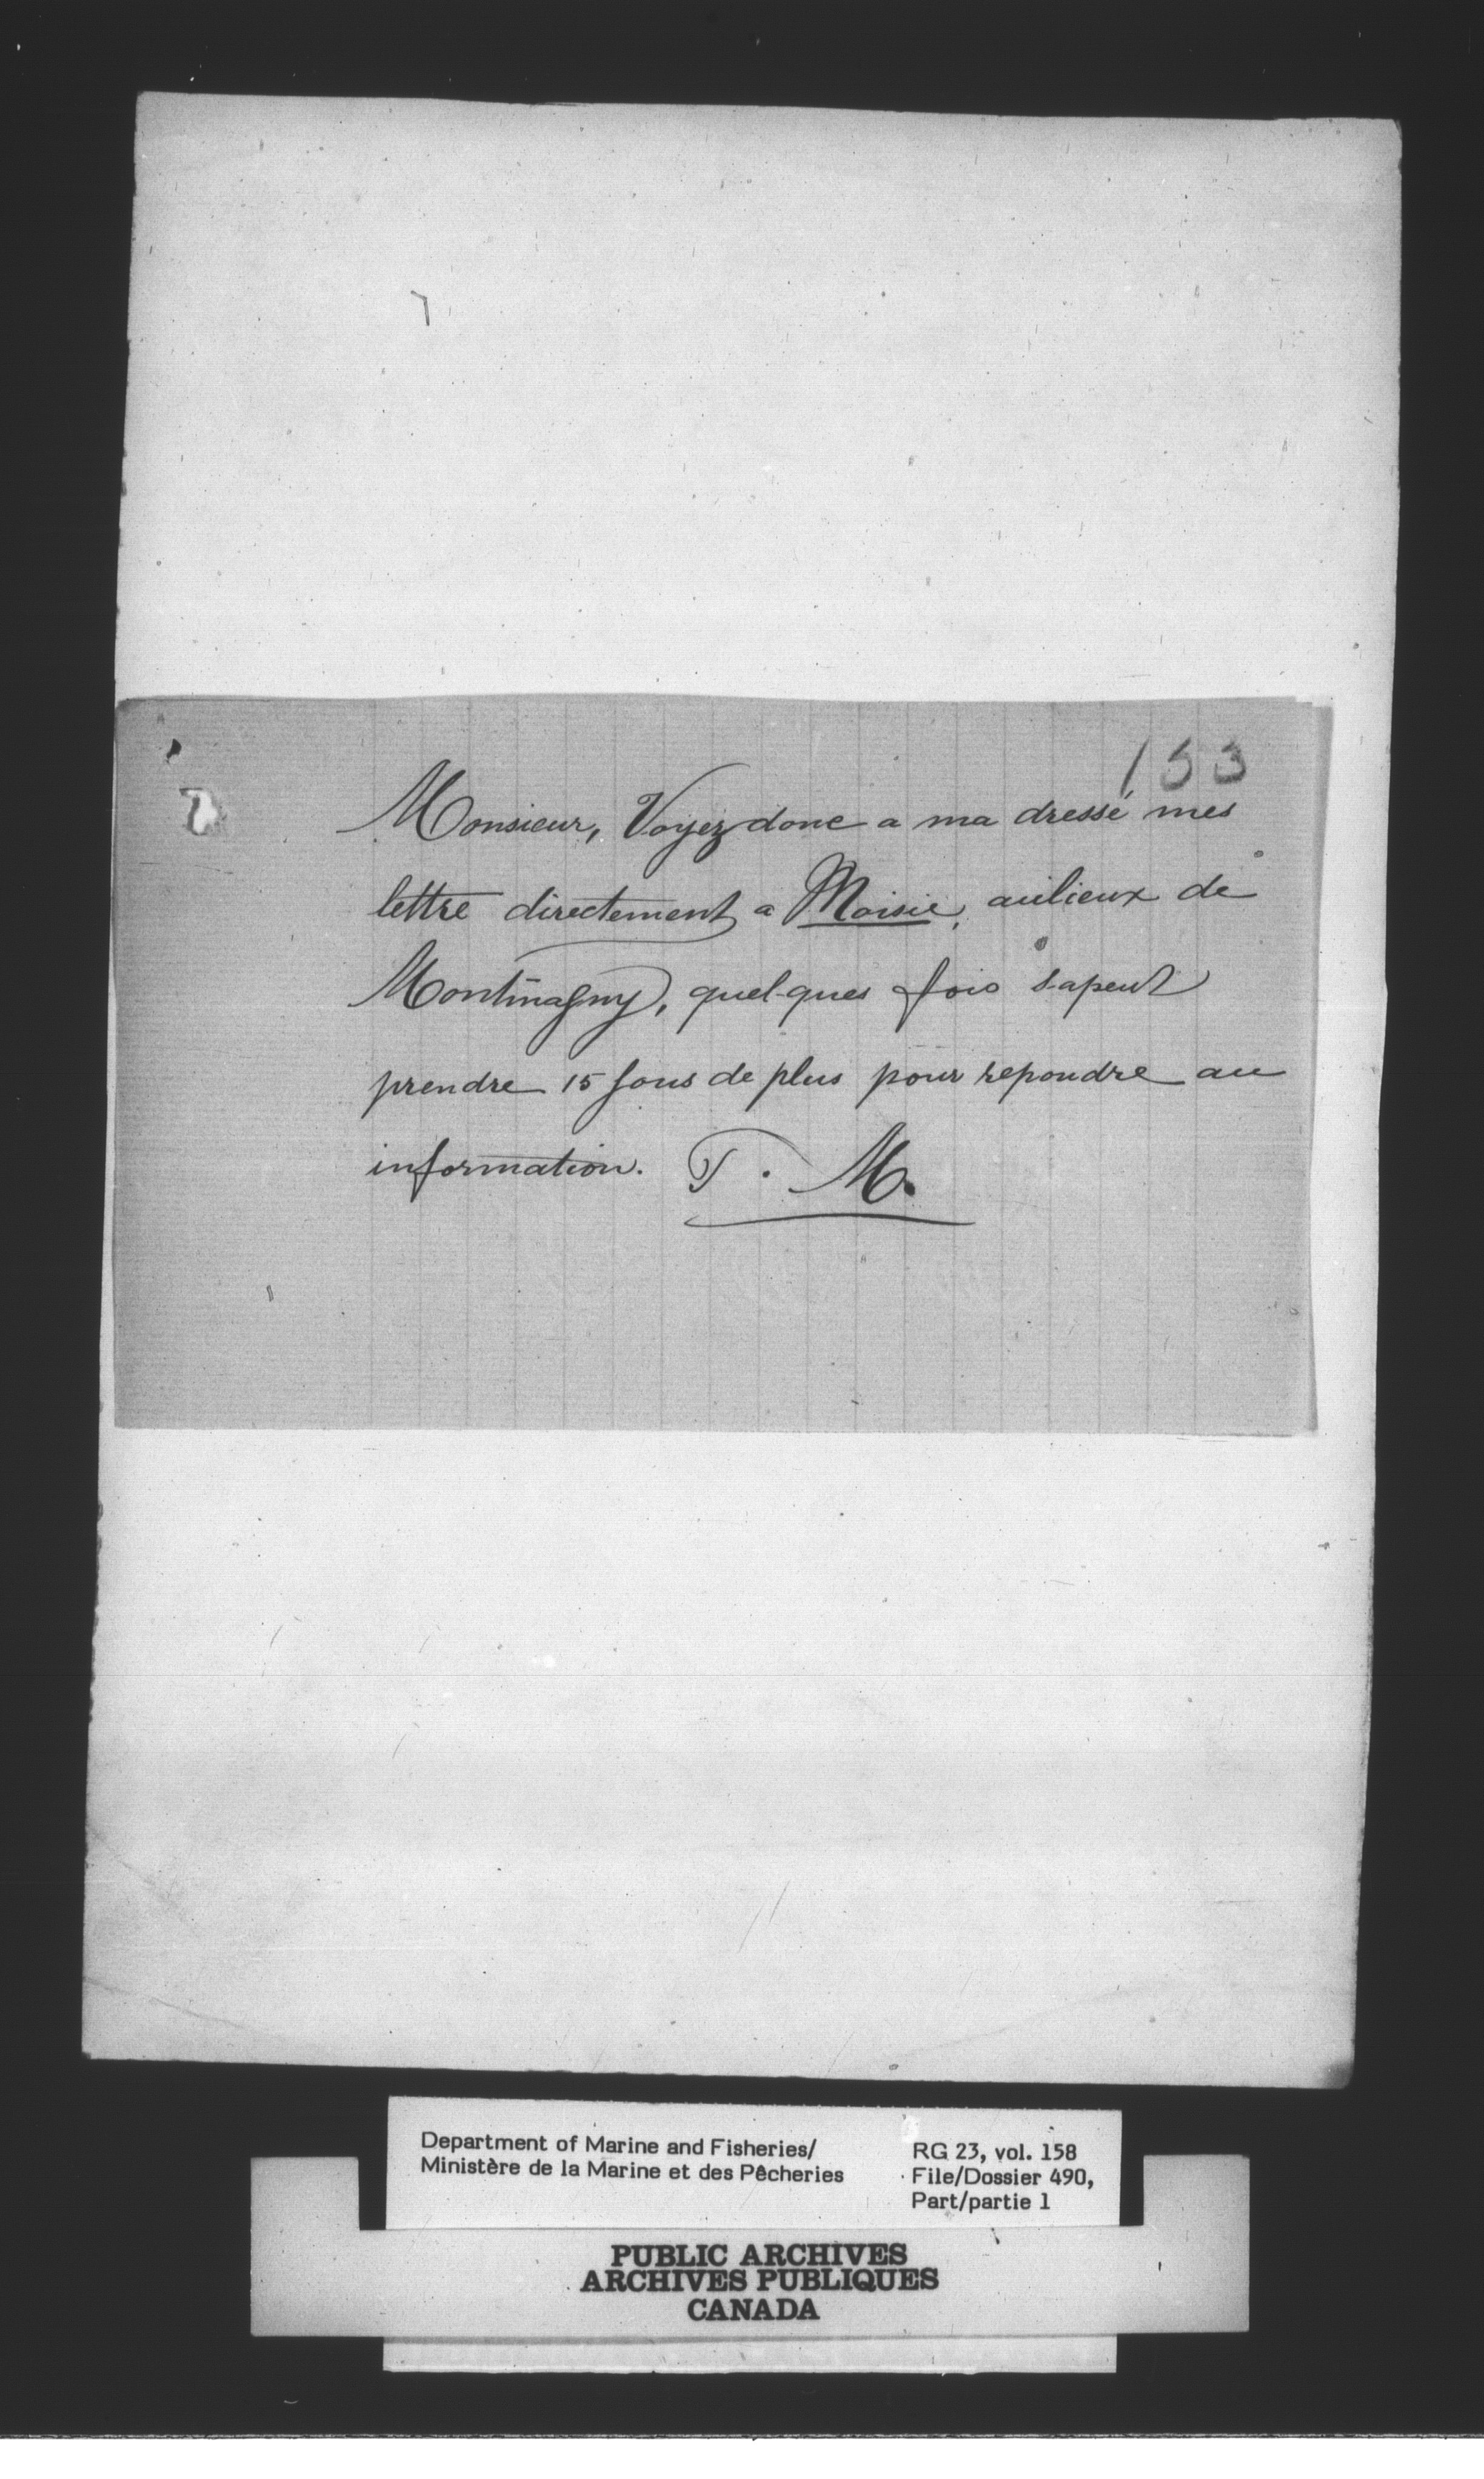 153
Monsieur, Voyez donc a ma dressé mes
lettre directement a Moisie, aulieux de
Montmagny, quel-ques fois sapeut
prendre 15 jours de plus pour repondre au
information. T. M.
Department of Marine and Fisheries/
Ministère de la Marine et des Pêcheries
RG 23, vol. 158
File/Dossier 490,
Part/partie 1
PUBLIC ARCHIVES
ARCHIVES PUBLIQUES
CANADA